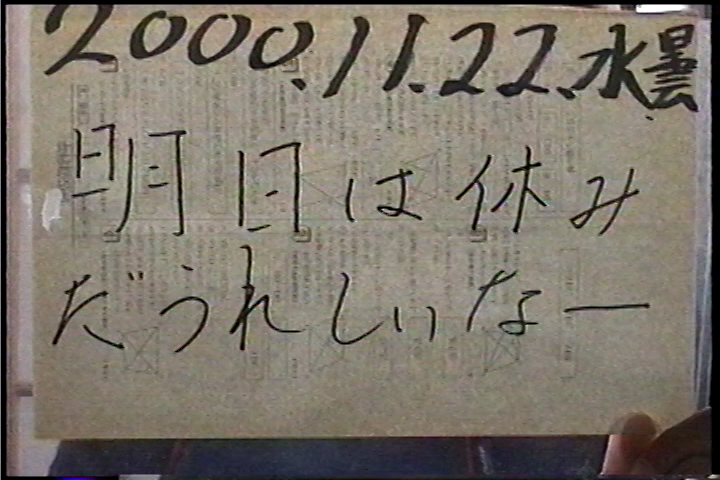 2000.11.22.水曇
明日は休み
だうれしいなー